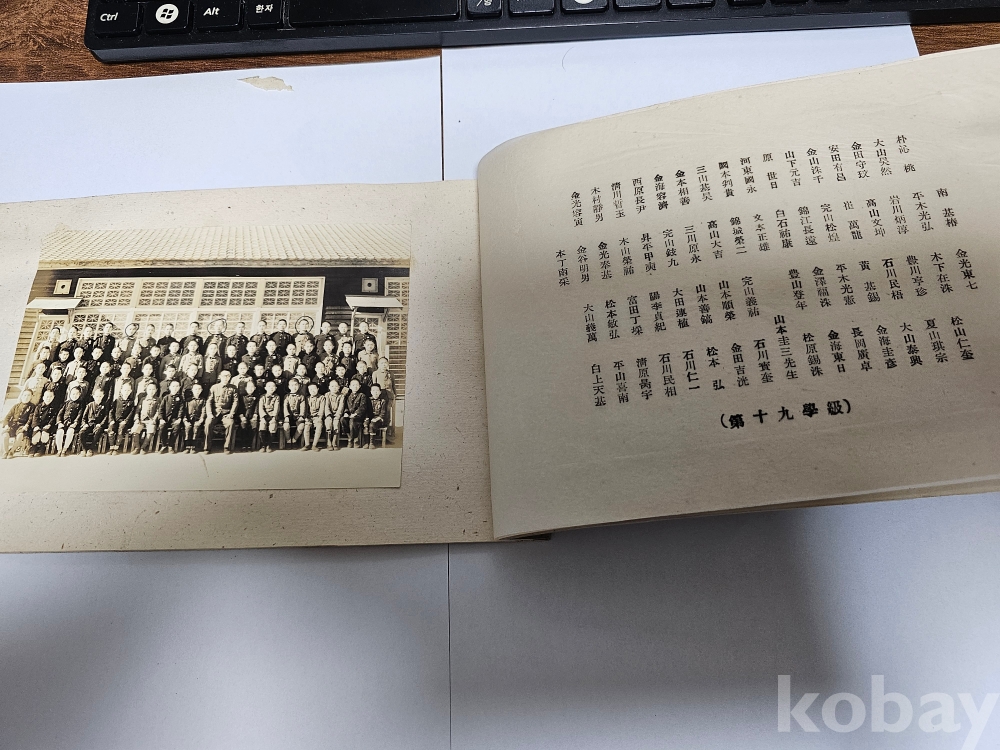 Ctrl
Alt
한자
/영
朴沁桃
大山昊然
金田守玟
安田有昌
金山洙千
山下元吉
原世日
河東國永
闕本判貴
三山基昊
金本相善
金海容濟
西原長尹
清川哲玉
木村靜男
金光容寅
南基椿
平木光弘
岩川炳淳
髙山文坤
崔萬龍
完山松煌
錦江長遠
白石祐康
文本正雄
錦城榮二
髙山大吉
三川原永
完山鉉九
昇平甲奭
木山榮祐
金光奉基
金谷明男
本丁南埰
金光東七
木下在洙
豊川亨珍
石川民梧
黃基錫
平木光憲
金澤福洙
豊山登年
完山義祐
山本順榮
山本善鎬
大田璉植
陽李貞紀
富田丁埰
松本敏弘
大山萬
松山仁奎
夏山琪宗
大山泰興
金海圭彦
長岡廣卓
金海東日
松原錫洙
山本圭三先生
石川實奎
金田吉洸
松本弘
石川仁一
石川民相
清原萬宇
平山喜南
白上天基
(第十九學級)
kobay